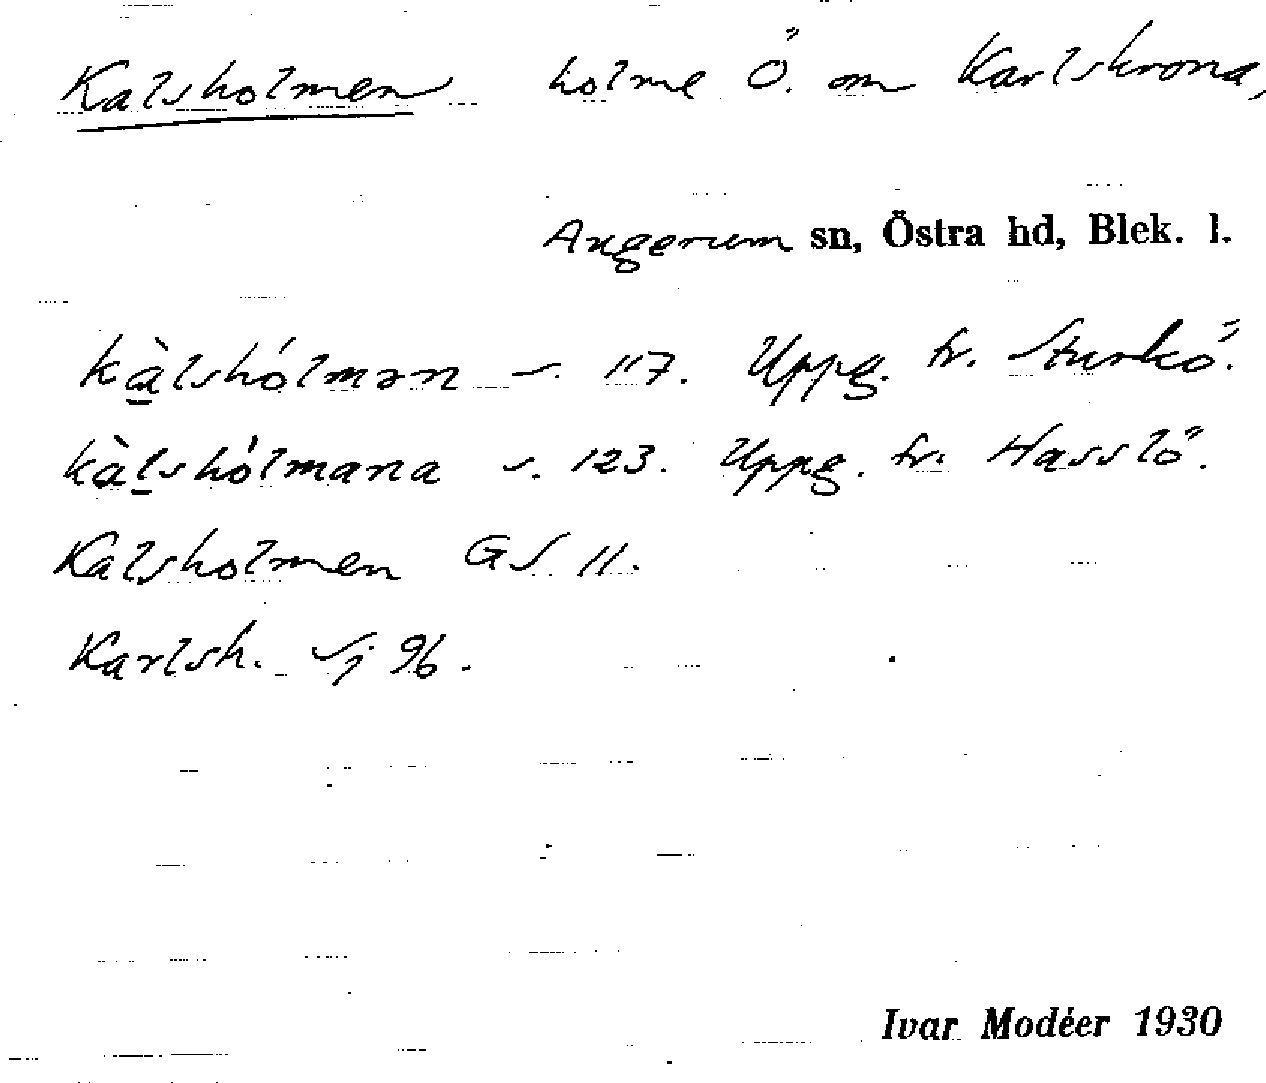 Kalsholmen holme Ö. om Karlskrona,
Augerum sn, Östra hd, Blek. l.
kàlshólmən s. 117. Uppg. fr. Sturkö.
kàlshólmana s. 123. Uppg. fr. Hasslö.
Kalsholmen GS 11.
Karlsh. Sj 96.
Ivar Modéer 1930